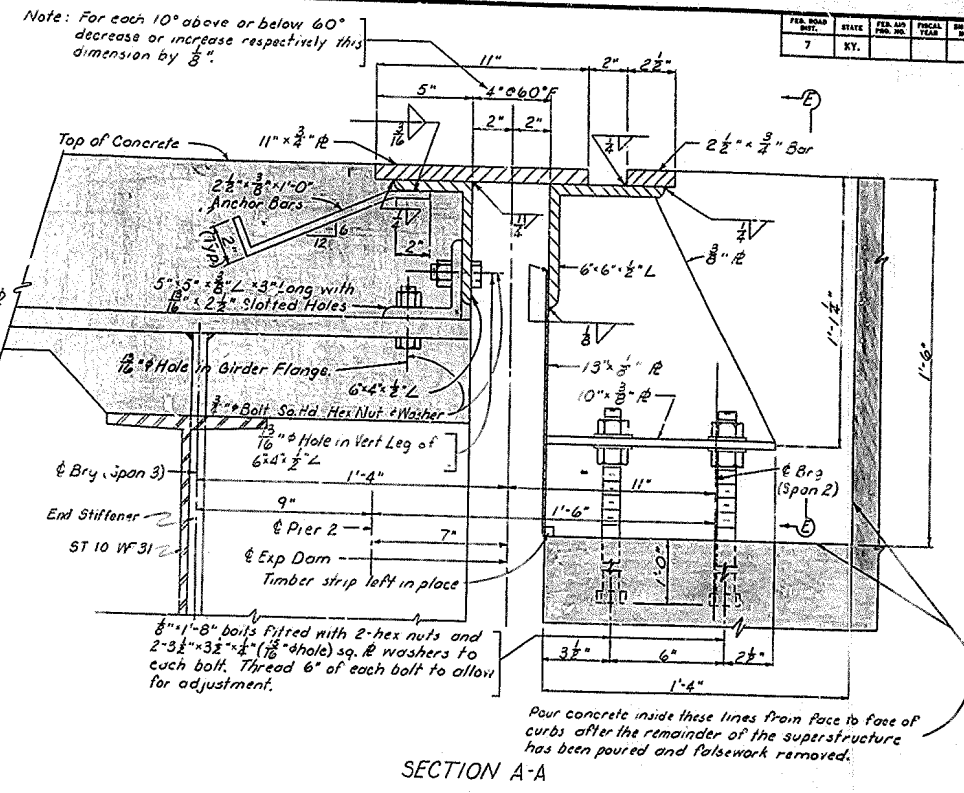 Note: For each 10° above or below 60°
decrease or increase respectively this
dimension by 1/8".
FED. ROAD DIST.
STATE
FED. AID PROJ. NO.
FISCAL YEAR
7
KY.
11"
2"
2 1/2"
5"
4" @ 60° F
E
2"
2"
3/16
1/4
Top of Concrete
11" x 3/4" ℞
2 1/2" x 3/4" Bar
2 1/2" x 3/8" x 1'-0"
Anchor Bars
6
12
1/4
1/4
1/4
2"
(TYP)
2"
3/8" ℞
6" x 6" x 1/2" L
5" x 5" x 3/8" L x 3" Long with
13/16" x 2 1/2" Slotted Holes
1'-1 1/2"
1'-6"
1/8
13/16" ϕ Hole in Girder Flange.
13" x 1/8" ℞
6" x 4" x 1/2" L
10" x 3/8" ℞
3/4" ϕ Bolt Sq. Hd. Hex Nut & Washer
13/16" ϕ Hole in Vert Leg of
6" x 4" x 1/2" L
℄ Brg (Span 3)
1'-4"
11"
℄ Brg
(Span 2)
9"
1'-6"
End Stiffener
℄ Pier 2
7"
E
ST 10 WF 31
℄ Exp Dam
Timber strip left in place
1'-0"
" x 1'-8" bolts fitted with 2-hex nuts and
2-3 1/2" x 3 1/2" x 1/4" (15/16" ϕ hole) sq. ℞ washers to
each bolt. Thread 6" of each bolt to allow
for adjustment.
3 1/2"
6"
2 1/2"
1'-4"
Pour concrete inside these lines from face to face of
curbs after the remainder of the superstructure
has been poured and falsework removed.
SECTION A-A